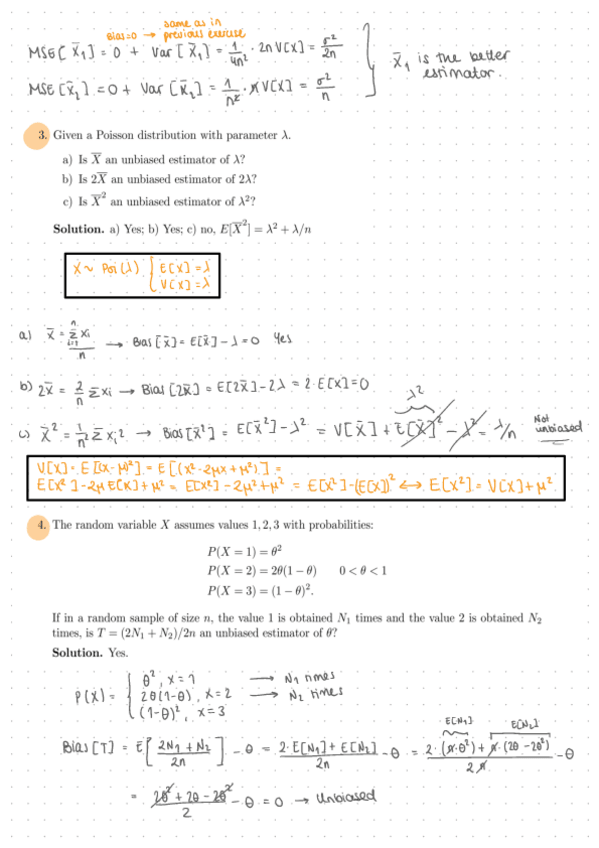 same as in
Bias=0 → previous exercise
MSE[X̄₁] = 0 + Var[X̄₁] = 1/4n² · 2n V[X] = σ²/2n
X̄₁ is the better
estimator.
MSE[X̄₂] = 0 + Var[X̄₂] = 1/n² · n V[X] = σ²/n
3. Given a Poisson distribution with parameter λ.
a) Is X̄ an unbiased estimator of λ?
b) Is 2X̄ an unbiased estimator of 2λ?
c) Is X̄² an unbiased estimator of λ²?
Solution. a) Yes; b) Yes; c) no, E[X̄²] = λ² + λ/n
X ~ Poi(λ) { E[X] = λ
V[X] = λ
a) X̄ = Σⁿᵢ₌₁ xi / n → Bias[X̄] = E[X̄] - λ = 0 Yes
b) 2X̄ = 2/n Σxi → Bias[2X̄] = E[2X̄] - 2λ = 2·E[X] = 0
λ²
c) X̄² = 1/n² Σxi² → Bias[X̄²] = E[X̄²] - λ² = V[X̄] + E[X̄]² - λ² = λ/n Not unbiased
V[X] = E[(X-μ)²] = E[(x² - 2μx + μ²)] =
E[x²] - 2μE[X] + μ² = E[X²] - 2μ² + μ² = E[X²] - (E[X])² ↔ E[X²] = V[X] + μ²
4. The random variable X assumes values 1, 2, 3 with probabilities:
P(X = 1) = θ²
P(X = 2) = 2θ(1 − θ) 0 < θ < 1
P(X = 3) = (1 − θ)².
If in a random sample of size n, the value 1 is obtained N₁ times and the value 2 is obtained N₂
times, is T = (2N₁ + N₂)/2n an unbiased estimator of θ?
Solution. Yes.
θ², x = 1 → N₁ times
P(X) = { 2θ(1-θ), x = 2 → N₂ times
(1-θ)², x = 3
E[N₁] E[N₂]
Bias[T] = E[2N₁ + N₂ / 2n] - θ = 2·E[N₁] + E[N₂] / 2n - θ = 2·(n·θ²) + n·(2θ - 2θ²) / 2n - θ
= 2θ² + 2θ - 2θ² / 2 - θ = 0 → Unbiased